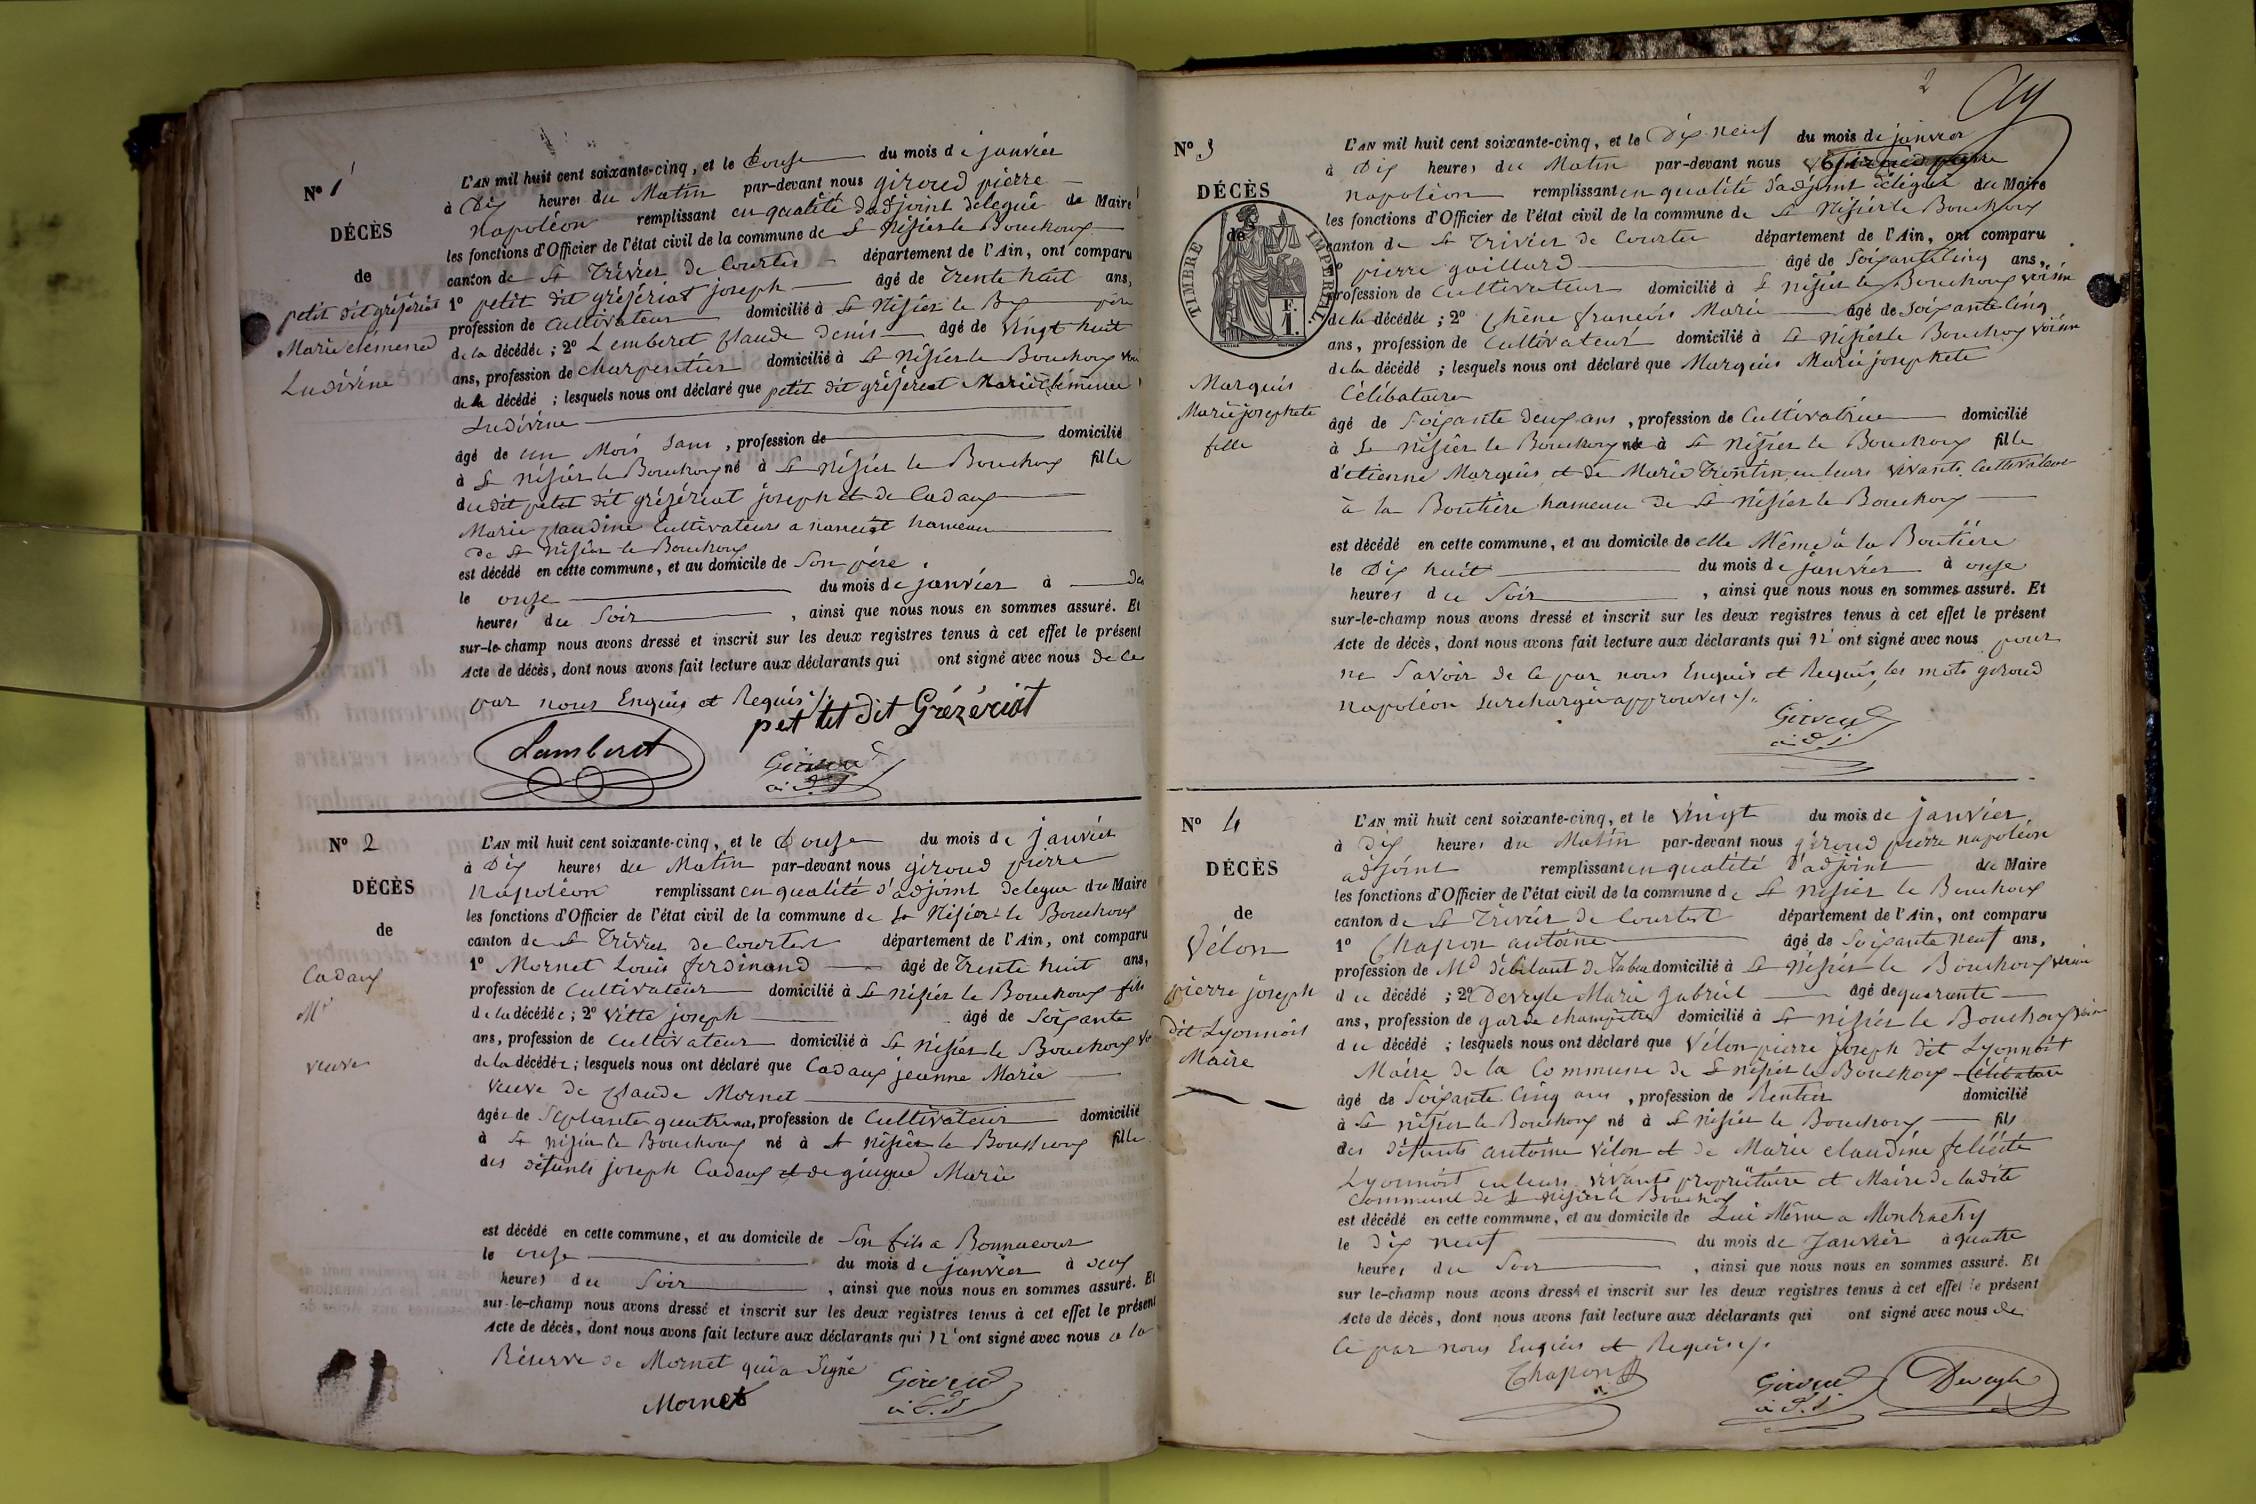 N° 1
DÉCÈS
de
petit dit grézériat
Marie clemence
Ludivine
L'AN mil huit cent soixante-cinq, et le Douse du mois de janvier
à Dix heures du Matin par-devant nous giroud pierre
Napoléon remplissant en qualité d'adjoint délégué de Maire
les fonctions d'Officier de l'état civil de la commune de St Nisier le Bouchoux
canton de St Trivier de Courtes département de l'Ain, ont comparu
1° petit dit grézériat joseph âgé de Trente huit ans,
profession de Cultivateur domicilié à St Nisier le Bx père
de la décédée ; 2° Lemberet Claude Denis âgé de Vingt huit
ans, profession de charpentier domicilié à St Nisier le Bouchoux
de la décédé ; lesquels nous ont déclaré que petit dit grézériat Marie Clémence
Ludivine
âgé de un Mois sans , profession de domicilié
à St Nisier le Bouchoux né à St Nisier le Bouchoux fille
du dit petit dit grézériat joseph et de Cadaux
Marie Claudine Cultivateurs a hameau
De St Nisier le Bouchoux
est décédé en cette commune, et au domicile de Son père
le onse du mois de janvier à
heures du Soir , ainsi que nous nous en sommes assuré. Et
sur-le-champ nous avons dressé et inscrit sur les deux registres tenus à cet effet le présent
Acte de décès, dont nous avons fait lecture aux déclarants qui ont signé avec nous de ce
par nous Enquis et Requis
pet tit dit Grézériat
Lamberet
Giroud
a. d.
N° 2
DÉCÈS
de
Cadaux
Mie
veuve
L'AN mil huit cent soixante-cinq, et le Douse du mois de janvier
à Dix heures du Matin par-devant nous giroud pierre
Napoléon remplissant en qualité d'adjoint delegue du Maire
les fonctions d'Officier de l'état civil de la commune de St Nisier le Bouchoux
canton de St Trivier de Courtes département de l'Ain, ont comparu
1° Mornet Louis ferdinand âgé de Trente huit ans,
profession de Cultivateur domicilié à St Nisier le Bouchoux fils
de la décédée ; 2° Vitte joseph âgé de Soixante
ans, profession de Cultivateur domicilié à St Nisier le Bouchoux
de la décédée ; lesquels nous ont déclaré que Cadaux jeanne Marie
Veuve de Claude Mornet
âgée de Septante quatre ans, profession de Cultivateur domicilié
à St Nisier le Bouchoux né à St Nisier le Bouchoux fille
des défunts joseph Cadaux et de Marie
est décédé en cette commune, et au domicile de Son fils a Bonnacour
le onse du mois de janvier à deux
heures du Soir , ainsi que nous nous en sommes assuré. Et
sur-le-champ nous avons dressé et inscrit sur les deux registres tenus à cet effet le présent
Acte de décès, dont nous avons fait lecture aux déclarants qui n'ont signé avec nous a la
Réserve de Mornet qui a Signé
Mornet
Giroud
a. d.
2
N° 3
DÉCÈS
de
TIMBRE IMPERIAL
F.
1.
Marquis
Marie josephete
fille
L'AN mil huit cent soixante-cinq, et le Dix neuf du mois de janvier
à Dix heures du Matin par-devant nous
Napoléon remplissant en qualité d'adjoint délégué du Maire
les fonctions d'Officier de l'état civil de la commune de St Nisier le Bouchoux
canton de St Trivier de Courtes département de l'Ain, ont comparu
pierre gaillard âgé de Soixante cinq ans,
profession de Cultivateur domicilié à St Nisier le Bouchoux voisin
de la décédée ; 2° Chêne francois Marie âgé de Soixante cinq
ans, profession de Cultivateur domicilié à St Nisier le Bouchoux voisin
de la décédé ; lesquels nous ont déclaré que Marquis Marie josephete
Célibataire
âgé de Soixante Deux ans , profession de Cultivatrice domicilié
à St Nisier le Bouchoux né à St Nisier le Bouchoux fille
d'étienne Marquis et de Marie Trontin en leurs vivants Cultivateurs
à la Boutière hameau de St Nisier le Bouchoux
est décédé en cette commune, et au domicile de elle Même à la Boutière
le Dix huit du mois de janvier à onse
heures du Soir , ainsi que nous nous en sommes assuré. Et
sur-le-champ nous avons dressé et inscrit sur les deux registres tenus à cet effet le présent
Acte de décès, dont nous avons fait lecture aux déclarants qui n'ont signé avec nous pour
ne Savoir de ce par nous Enquis et Requis, les mots giroud
Napoléon Surchargés approuvés
Giroud
a. d.
N° 4
DÉCÈS
de
Vélon
pierre joseph
dit Lyonnois
Maire
L'AN mil huit cent soixante-cinq, et le Vingt du mois de janvier
à Dix heures du Matin par-devant nous giroud pierre napoléon
adjoint remplissant en qualité d'adjoint du Maire
les fonctions d'Officier de l'état civil de la commune de St Nisier le Bouchoux
canton de St Trivier de Courtes département de l'Ain, ont comparu
1° Chapon antoine âgé de Soixante neuf ans,
profession de Md débitant de Tabac domicilié à St Nisier le Bouchoux voisin
du décédé ; 2° Deveyle Marie gabriel âgé de quarante
ans, profession de garde champêtre domicilié à St Nisier le Bouchoux voisin
du décédé ; lesquels nous ont déclaré que Vélon pierre joseph dit Lyonnoit
Maire de la Commune de St Nisier le Bouchoux Célibataire
âgé de Soixante Cinq ans , profession de Rentier domicilié
à St Nisier le Bouchoux né à St Nisier le Bouchoux fils
des défunts antoine Vélon et de Marie claudine félicité
Lyonnoit en leurs vivants propriétaire et Maire de ladite
Commune de St Nisier le Bouchoux
est décédé en cette commune, et au domicile de Lui Même a Montrachy
le Dix neuf du mois de Janvier à quatre
heures du Soir , ainsi que nous nous en sommes assuré. Et
sur le-champ nous avons dressé et inscrit sur les deux registres tenus à cet effet le présent
Acte de décès, dont nous avons fait lecture aux déclarants qui ont signé avec nous de
Ce par nous Enquis et Requis
Chapon
Giroud
a. d.
Deveyle